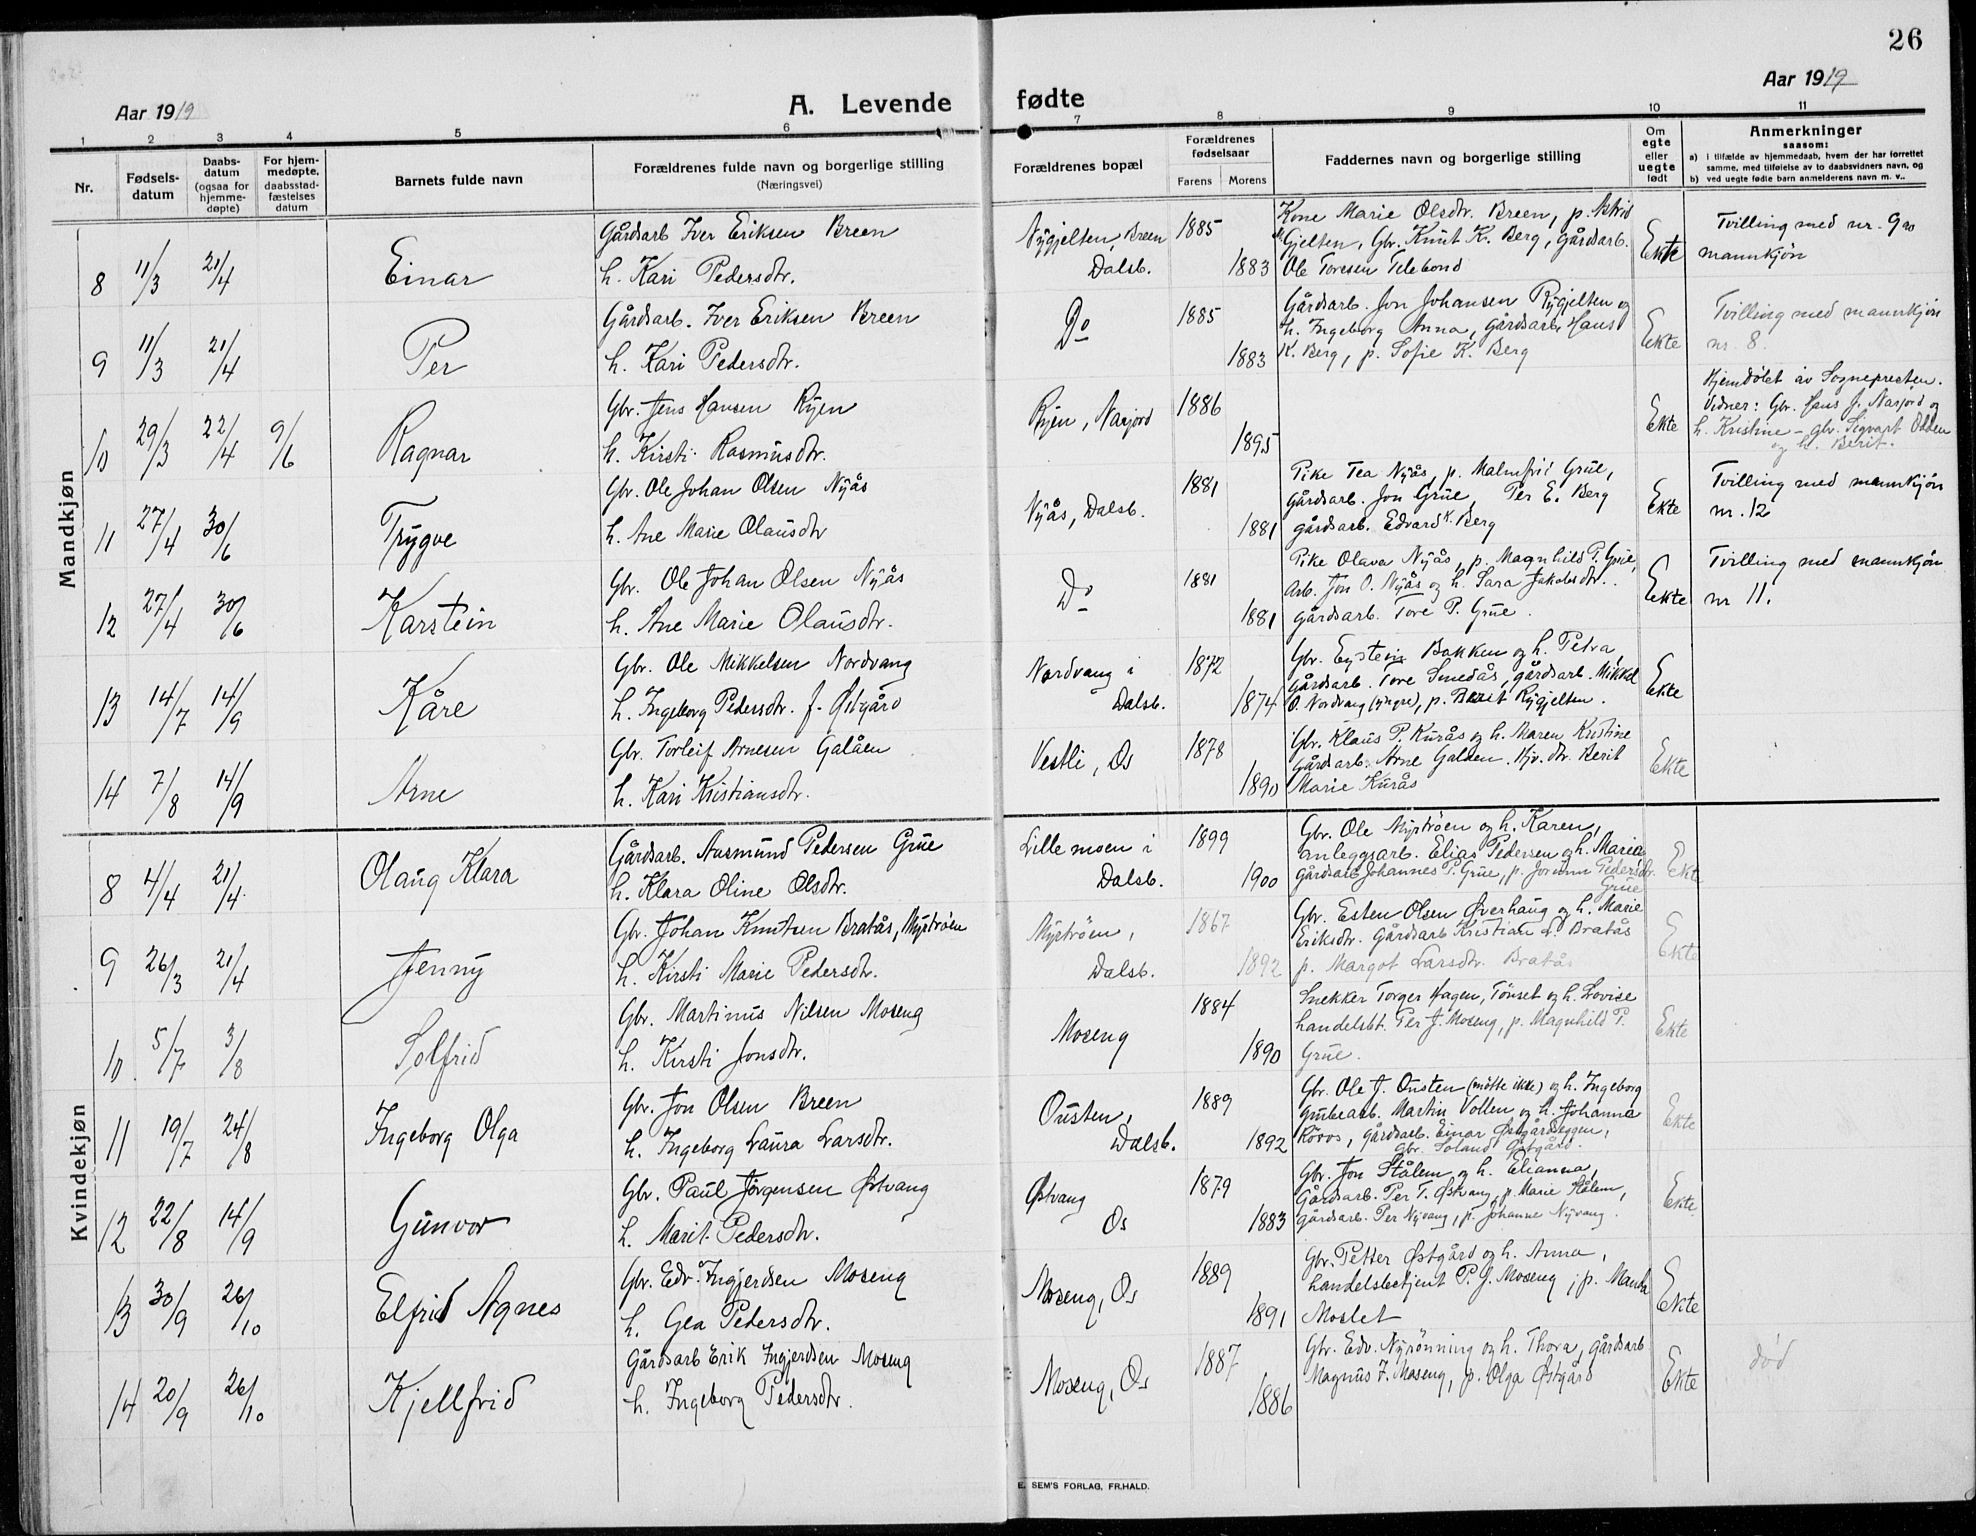 26
Aar 1919
A. Levende fødte
Aar 1919
1 2 3 4 5 6 7 8 9 10 11
Nr.
Fødsels-
datum
Daabs-
datum
(ogsaa for
hjemme-
døpte)
For hjem-
medøpte,
daabsstad-
fæstelses
datum
Barnets fulde navn
Forældrenes fulde navn og borgerlige stilling
(Næringsvei)
Forældrenes bopæl
Forældrenes
fødselsaar
Farens Morens
Faddernes navn og borgerlige stilling
Om
egte
eller
uegte
født
Anmerkninger
saasom:
a) i tilfælde av hjemmedaab, hvem der har forrettet
samme, med tilføielse av to daabsvidners navn, og
b) ved uegte fødte barn anmelderens navn m. v..
Mandkjøn
8 11/3 21/4 Einar
Gårdsarb Iver Eriksen Breen
h. Kari Pedersdtr.
Nygjelten, Breen
Dalsb.
1885
1883
Kone Marie Olsdtr. Breen, p. Astrid
Gjelten, Gbr. Knut K. Berg, Gårdsarb.
Ole Toresen Telebond
Ekte
Tvilling med nr. 9 av
mannkjøn
9 11/3 21/4 Per
Gårdsarb. Iver Eriksen Breen
h. Kari Pedersdtr.
Do
1885
1883
Gårdsarb. Jon Johansen Rygjelten og
h. Ingeborg Anna, gårdsarb. Hans
K. Berg, p. Sofie K. Berg
Ekte
Tvilling med mannkjøn
nr. 8.
10 29/3 22/4 9/6 Ragnar
Gbr. Jens Hansen Ryen
h. Kirsti Rasmusdtr.
Ryen, Narjord
1886
1895
Ekte
Hjemdøbt av Sognepresten.
Vidner: Gbr. Hans J. Narjord og
h. Kristine - gbr. Sigvart Odden
og h. Berit.
11 27/4 30/6 Trygve
Gbr. Ole Johan Olsen Nyås
h. Ane Marie Olausdtr
Nyås, Dalsb.
1881
1881
Pike Tea Nyås, p. Malmfrid Grue,
gårdsarb. Jon Grue, Per E. Berg
gårdsarb. Edvard K. Berg
Ekte
Tvilling med mannkjøn
nr. 12
12 27/4 30/6 Karstein
Gbr. Ole Johan Olsen Nyås
h. Ane Marie Olausdtr.
Do
1881
1881
Pike Olava Nyås, p. Magnhild P. Grue,
Arb. Jon O. Nyås og h. Sara Jakobsdtr.
gårdsarb. Tore P. Grue.
Ekte
Tvilling med mannkjøn
nr 11.
13 14/7 14/9 Kåre
Gbr. Ole Mikkelsen Nordvang
h. Ingeborg Pedersdtr. f. Østgård
Nordvang i
Dalsb.
1872
1874
Gbr. Eystein Bakken og h. Petra,
gårdsarb. Tore Smedås, gårdsarb. Mikkel
O. Nordvang (yngre), p. Berit Rygjelten.
Ekte
14 7/8 14/9 Arne
Gbr. Torleif Arnesen Galåen
h. Kari Kristiansdtr.
Vestli, Os
1878
1890
Gbr. Klaus P. Kurås og h. Maren Kristine
Gårdsarb. Arne Galåen. Hjv. dtr. Berit
Marie Kurås
Ekte
Kvindekjøn
8 4/4 21/4 Olaug Klara
Gårdsarb. Aasmund Pedersen Grue
h. Klara Oline Olsdtr.
Lillemoen i
Dalsb.
1899
1900
Gbr. Ole Myrtrøen og h. Karen,
anleggsarb. Elias Pedersen og h. Maria
gårdsarb Johannes P. Grue, p. Jorunn Pedersdtr.
Grue
Ekte
9 26/3 21/4 Jenny
Gbr. Johan Knutsen Bratås, Myrtrøen
h. Kirsti Marie Pedersdtr.
Myrtrøen,
Dalsb.
1867
1892
Gbr. Esten Olsen Øverhaug og h. Marie
Eriksdtr. Gårdsarb Kristian L. Bratås
p. Margot Larsdtr. Bratås
Ekte
10 5/7 3/8 Solfrid
Gbr. Martinus Nilsen Moseng
h. Kirsti Jonsdtr.
Moseng
1884
1890
Snekker Torger Hagen, Tønset og h. Lovise
handelsbt. Per J. Moseng, p. Magnhild P.
Grue.
Ekte
11 19/7 24/8 Ingeborg Olga
Gbr. Jon Olsen Breen
h. Ingeborg Laura Larsdtr.
Ousten,
Dalsb.
1889
1892
Gbr. Ole J. Ousten (møtte ikke) og h. Ingeborg
Grubearb. Martin Vollen og h. Johanna
Röros, gårdsarb. Einar Østgårdseggen,
Gbr. Soland Østgård.
Ekte
12 22/8 14/9 Gunvor
Gbr. Paul Jørgensen Østvang
h. Marit Pedersdtr.
Østvang
Os
1879
1883
Gbr. Jon Stålem og h. Elianna,
Gårdsarb. Per T. Østvang, p. Marie Hålem,
gårdsarb. Per Nyvang, p. Johanne Nyvang.
Ekte
13 30/9 26/10 Elfrid Agnes
Gbr. Edv. Ingjerdsen Moseng
h. Gea Pedersdtr.
Moseng, Os
1889
1891
Gbr. Petter Østgård og h. Anna,
handelsbetjent P. J. Moseng, p. Manda
Moslet
Ekte
14 20/9 26/10 Kjellfrid
Gårdsarb Erik Ingjerdsen Moseng
h. Ingeborg Pedersdtr.
Moseng, Os
1887
1886
Gbr. Edv. Nyrønning og h. Thora, gårdsarb
Magnus I. Moseng, p. Olga Østgård
Ekte
død
E. SEM'S FORLAG, FR.HALD.